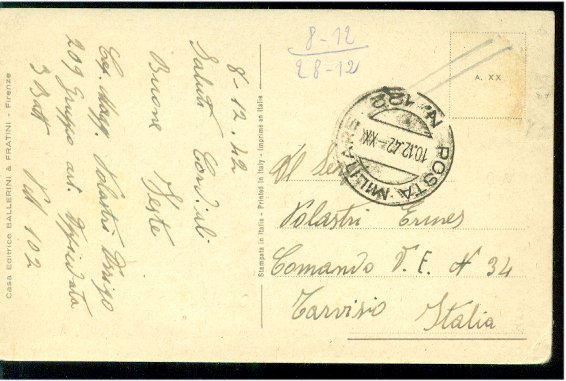 8-12
28-12
A. XX
POSTA MILITARE N. 102
10.12.42-XX
8-12.42
Saluti Cordiali
Buone Feste
Cap. Magg. Volastri
209 Gruppo art.
3 Batt P.M 102
Casa Editrice BALLERINI & FRATINI - Firenze
Stampata in Italia - Printed in Italy - Imprimé en Italie
Al Ser
Volastri Ermes
Comando V. E. N 34
Tarvisio
Italia